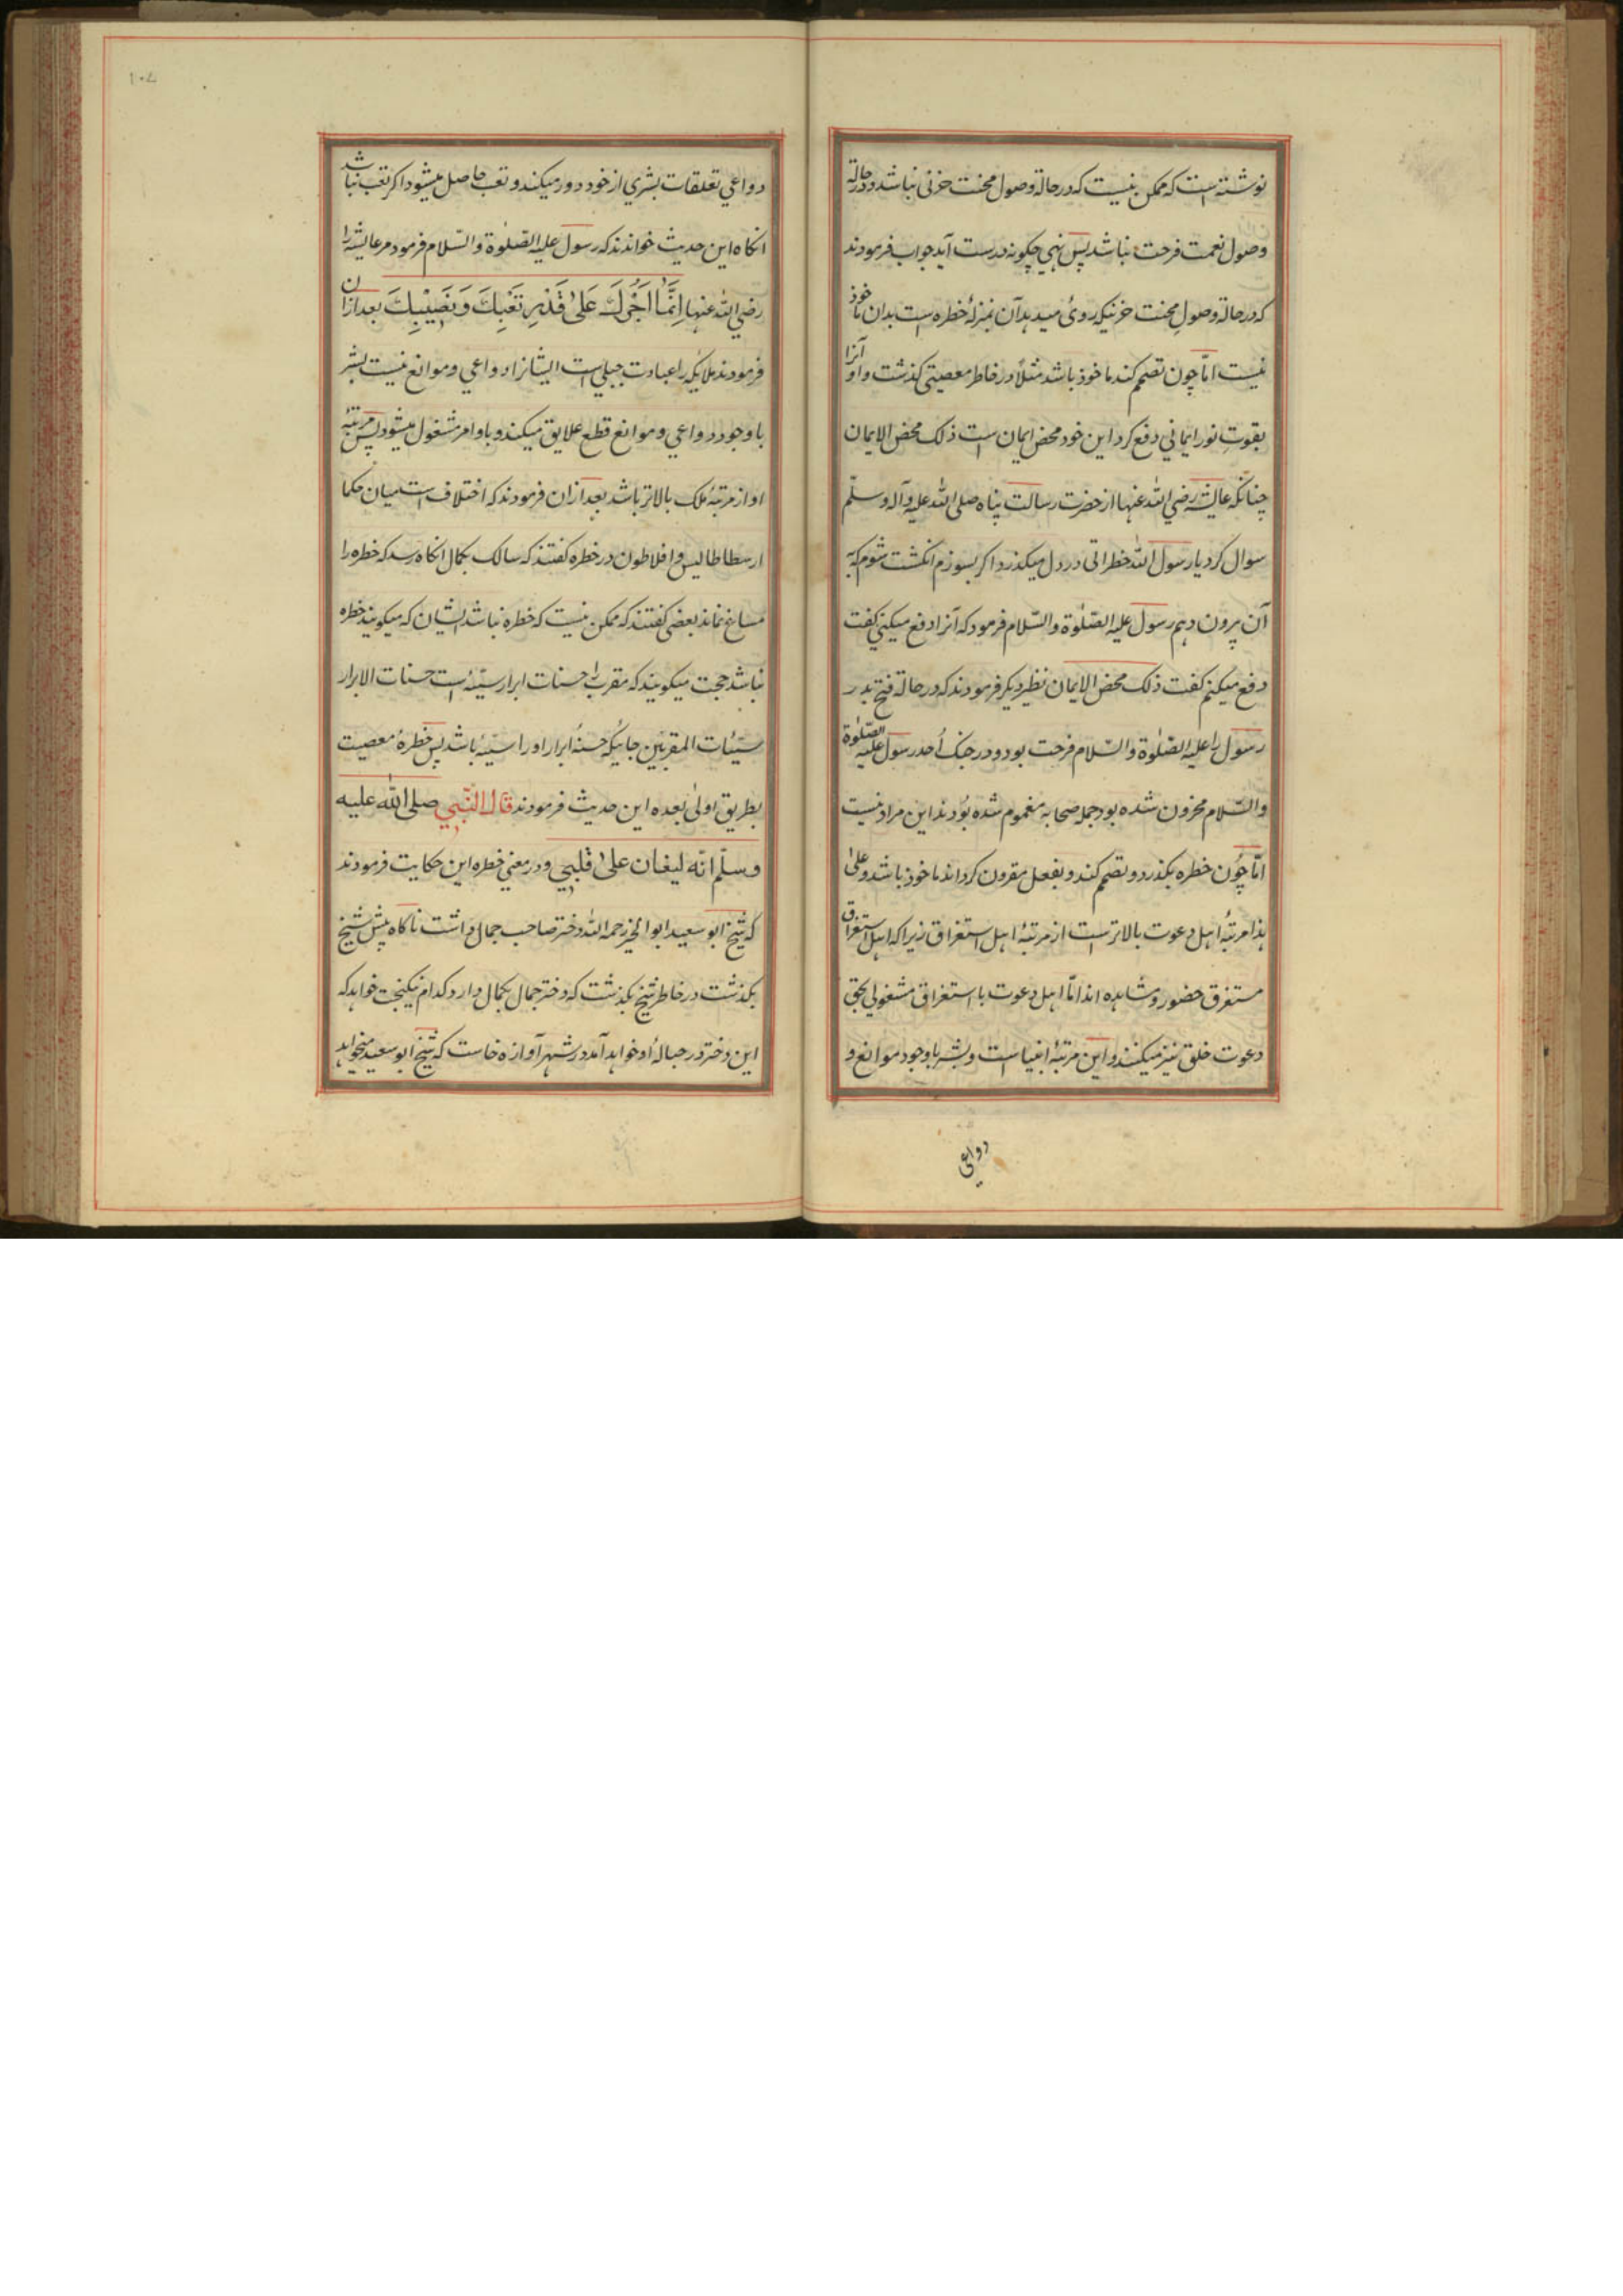 نوشته است که ممکن نیست که در حالة وصول محنت حزنی نباشد و در حالة
وصول نعمت فرحت نباشد پس نهی چکونه درست آید جواب فرمودند
که در حالة وصول محنت حزنیکه روئ میدهد آن بمنزلهٔ خطره است بدان ماخوذ
نیست امّا چون تصمم کند ماخوذ باشد مثلاً در خاطر معصیتی کذشت و او آنرا
بقوت نور ایمانی دفع کرد این خود محض ایمان است ذلک محض الایمان
چنانکه عایشه رضی الله عنها از حضرت رسالت پناه صلی الله علیه و آله وسلّم
سوال کرد یا رسول الله خطراتی در دل میکذرد اکر بسوزم انکشت شوم که به
آن بیرون دهم رسول علیه الصّلوٰة والسّلام فرمود که آنرا دفع میکنی کفت
دفع میکنم کفت ذلک محض الایمان نظیر دیکر فرمودند که در حالة فتح بدر
رسول را علیه الصّلوٰة والسّلام فرحت بود و در جنک اُحد رسول علیه الصّلوٰة
والسّلام محزون شده بود جمله صحابه مغموم شده بودند این مراد نیست
امّا چُون خطره بکذرد و تصمم کند و بفعل مقرون کرداند ماخوذ باشد و علیٰ
هذا مرتبهٔ اهل دعوت بالاتر است از مرتبهٔ اهل استغراق زیرا که اهل استغراق
مستغرق حضور و مشاهده اند امّا اهل دعوت با استغراق مشغولی بحق
دعوت خلق نیز میکنند و این مرتبهٔ انبیا است و بشر باوجود موانع و
دواعی
۱۰۷
دواعی تعلقات بشری از خود دور میکند و تعب حاصل میشود اکر تعب نباشد
انکاه این حدیث خواندند که رسول علیه الصّلوٰة والسّلام فرمود مر عایشه را
رضی الله عنها اِنَّمَا اَجْرُكَ عَلیٰ قَدْرِ تَعَبِكَ وَ نَصِیْبِكَ بعد ازان
فرمودند ملایکه را عبادت جبلی است ایشانرا دواعی و موانع نیست بشر
باوجود دواعی و موانع قطع علایق میکند و باوامر مشغول میشود پس مرتبهٔ
او از مرتبهٔ ملک بالاتر باشد بعد ازان فرمودند که اختلاف است میان حکما
ارسطاطالیس و افلاطون در خطره کفتند که سالک بکمال انکاه رسد که خطره را
مساغ نماند بعضی کفتند که ممکن نیست که خطره نباشد ایشان که میکویند خطره
نباشد حجت میکویند که مقرب را حسنات ابرار سیّئه است حسنات الابرار
سیّئات المقربین جائیکه حسنهٔ ابرار او را سیّئه باشد پس خطرهٔ معصیت
بطریق اولیٰ بعده این حدیث فرمودند قال النّبی صلی الله علیه
وسلّم انّه لیغان علیٰ قلبی و در معنی خطره این حکایت فرمودند
که شیخ ابو سعید ابو الخیر رحمه الله دختر صاحب جمال داشت ناکاه پیش شیخ
بکذشت در خاطر شیخ بکذشت که دختر جمال بکمال دارد کدام نیکبخت خواهد که
این دختر در حبالهٔ او خواهد آمد در شهر آوازه خاست که شیخ ابو سعید میخواهد